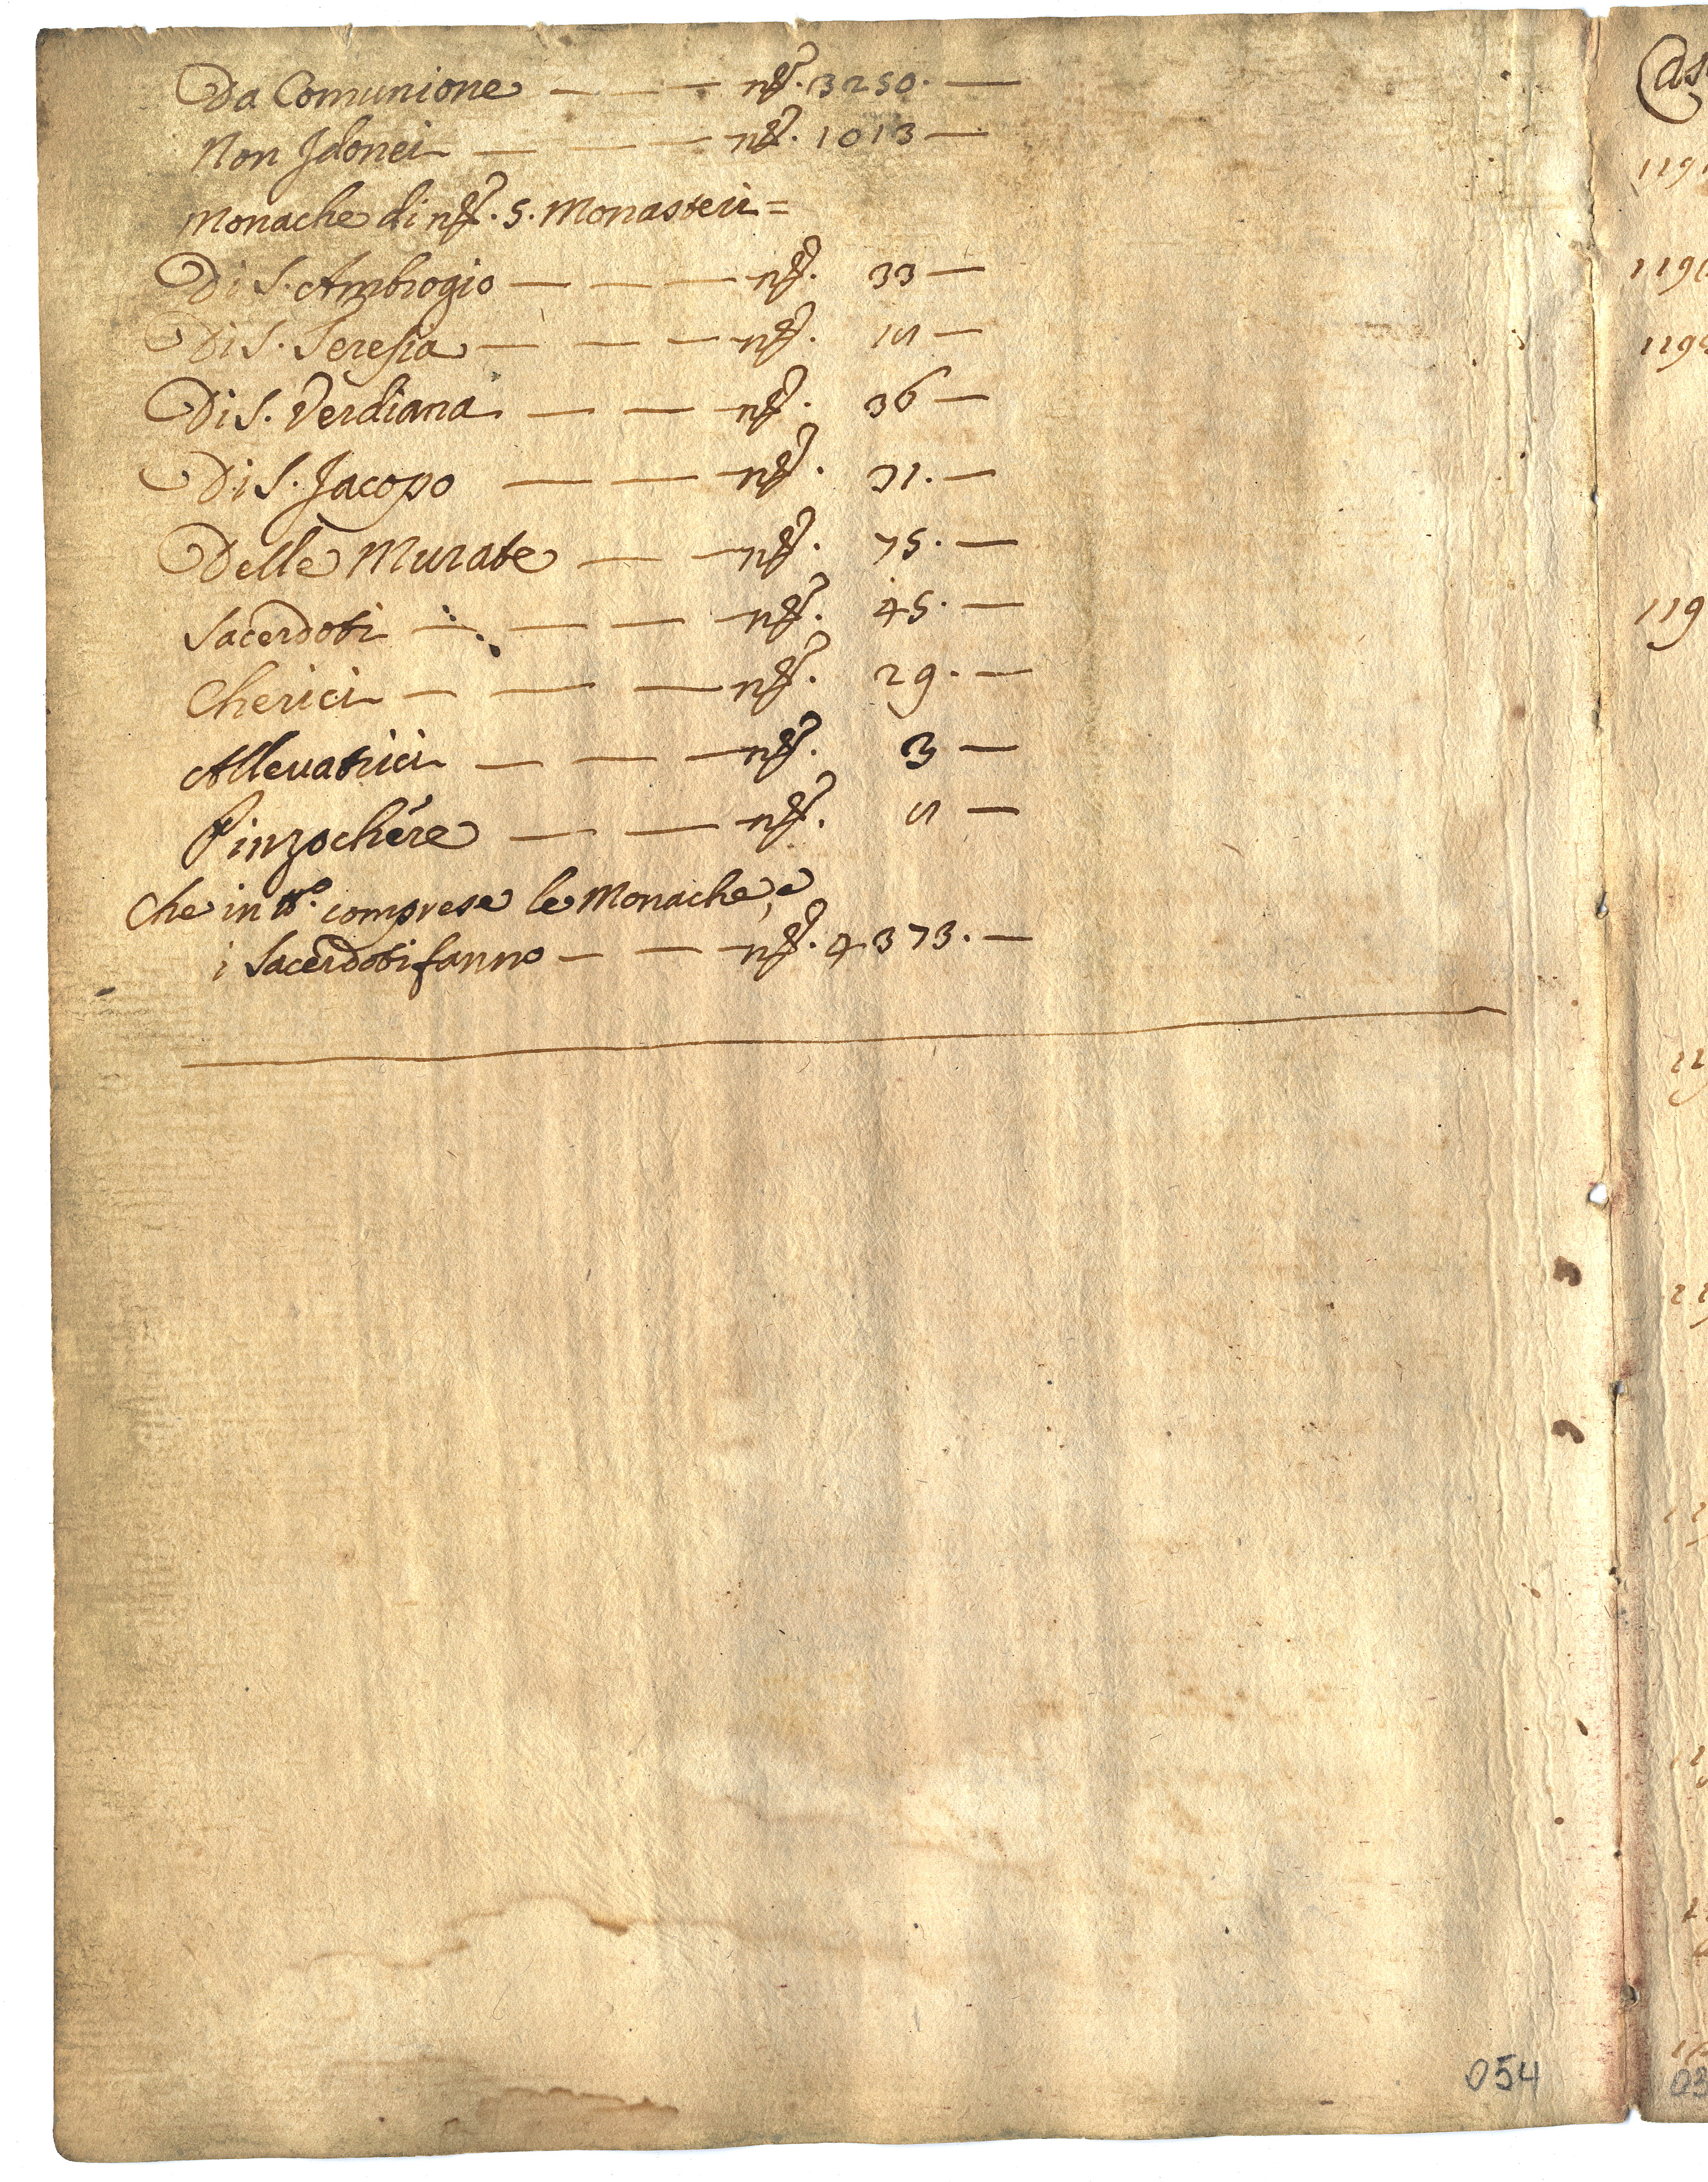 Da Comunione — — — nº. 3250. —
Non Idonei — — — nº. 1013 —
Monache di nº. 5. Monasteri =
Di S. Ambrogio — — — nº. 33 —
Di S. Teresia — — — nº. 15 —
Di S. Verdiana — — — nº. 36 —
Di S. Jacopo — — — nº. 31. —
Delle Murate — — nº. 75. —
Sacerdoti — — — nº. 45. —
Cherici — — — nº. 29. —
Allevatrici — — — nº. 3 —
Pinzochére — — — nº. 5 —
Che in tt.º comprese le Monache, e
i Sacerdoti fanno — — nº. 4373. —
054